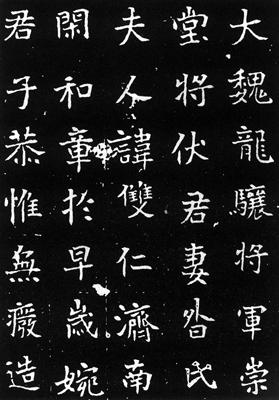 大魏龍驤將軍崇
堂將伏君妻昝氏
夫人諱雙仁濟南
閑和章於早歲婉
君子恭惟無癈造